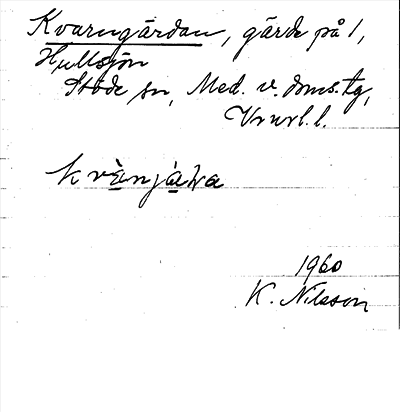 Kvarngärdan, gärde på 1,
Hullsjön
Stöde sn, Med. v. doms. tg,
Vnrl. l.
kvènjàɽa
1960
K. Nilsson